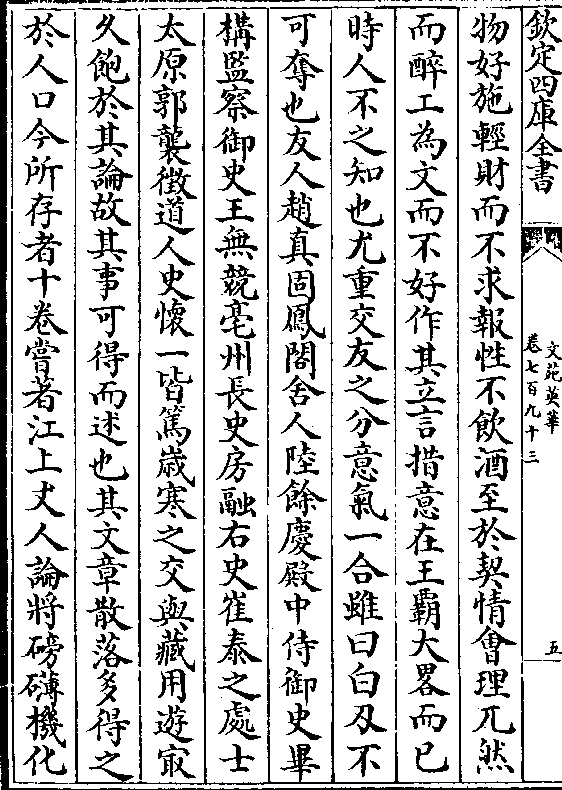 欽定四庫全書
文苑英華
卷七百九十三
五
物好施輕財而不求報性不飲酒至於契情會理兀然
而醉工為文而不好作其立言措意在王霸大畧而已
時人不之知也尤重交友之分意氣一合雖曰白刃不
可奪也友人趙真固鳳閣舍人陸餘慶殿中侍御史畢
構監察御史王無競亳州長史房融右史崔泰之處士
太原郭襲徴道人史懷一皆篤歳寒之交與藏用遊㝡
久飽於其論故其事可得而述也其文章散落多得之
於人口今所存者十卷嘗著江上丈人論將磅礴機化